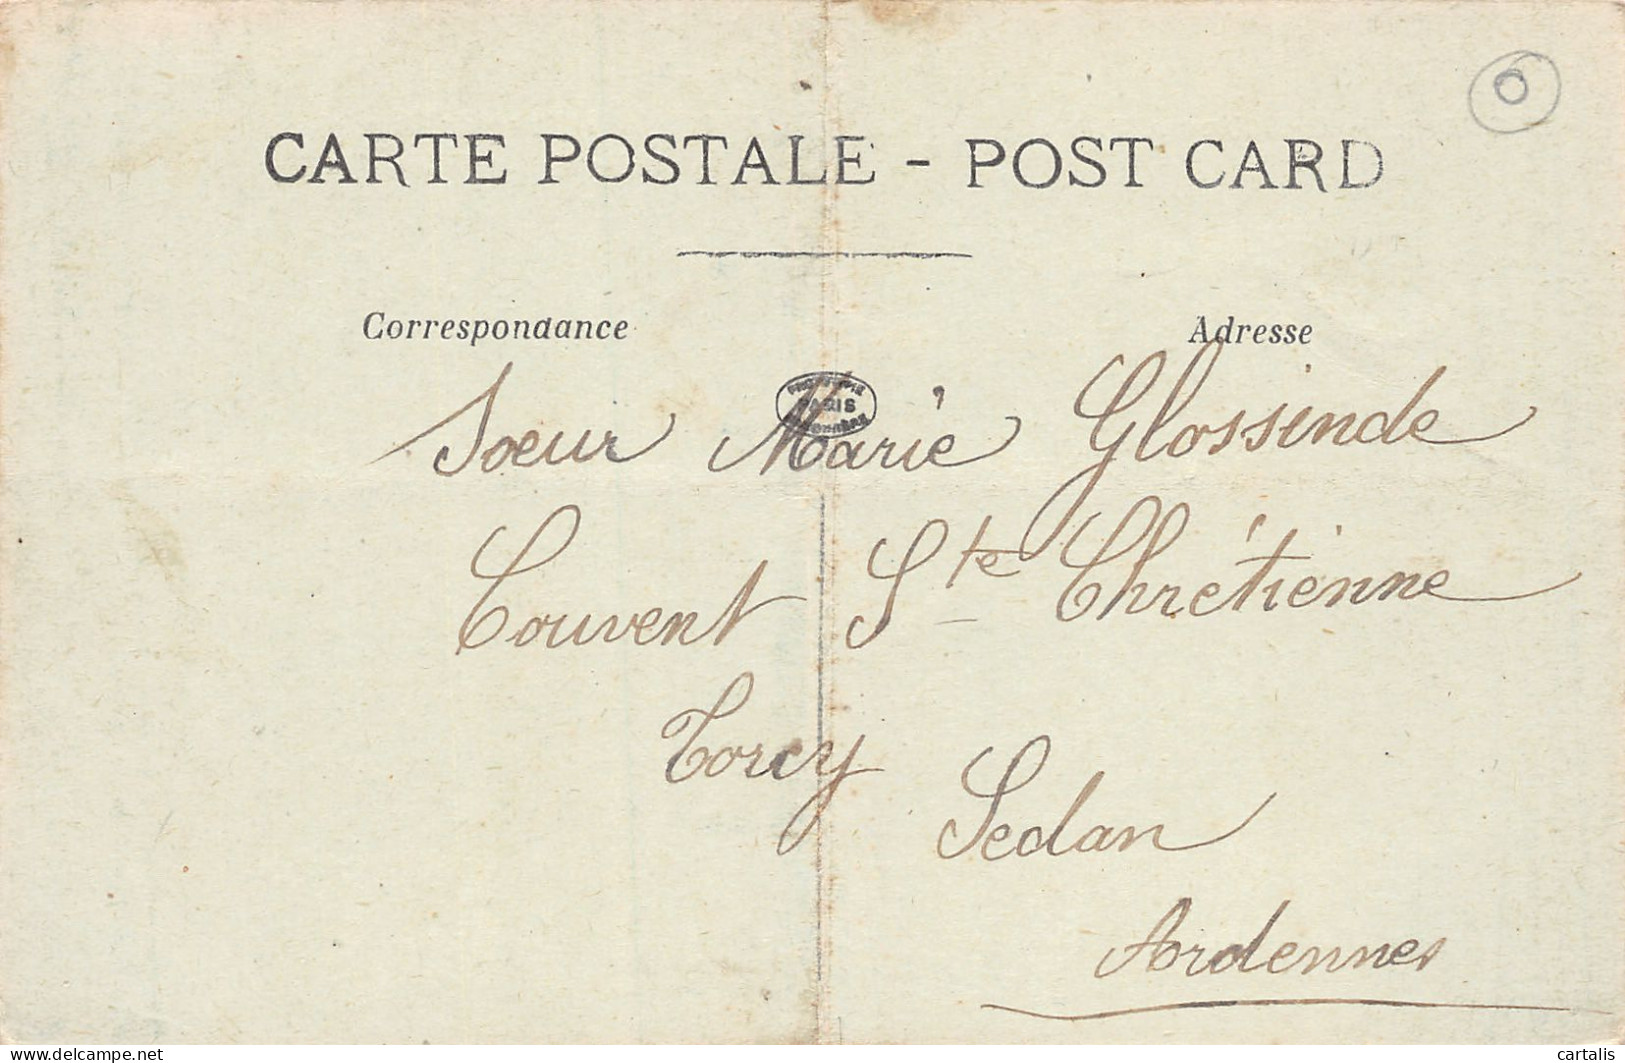 CARTE POSTALE - POST CARD
Correspondance
Adresse
PARIS
Sœur Marie Glossinde
Couvent Ste Chrétienne
Torcy
Sedan
Ardennes
delcampe.net
cartalis